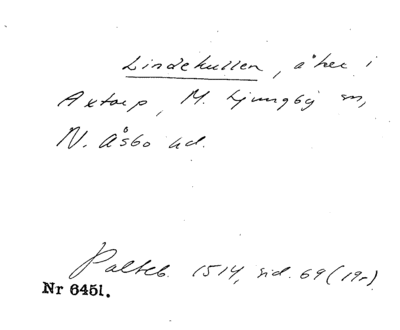 Lindekullen, åker i
Axtorp, M. Ljungby sn,
N. Åsbo hd.
Palteb. 1514, sid. 69 (19r)
Nr 6451.